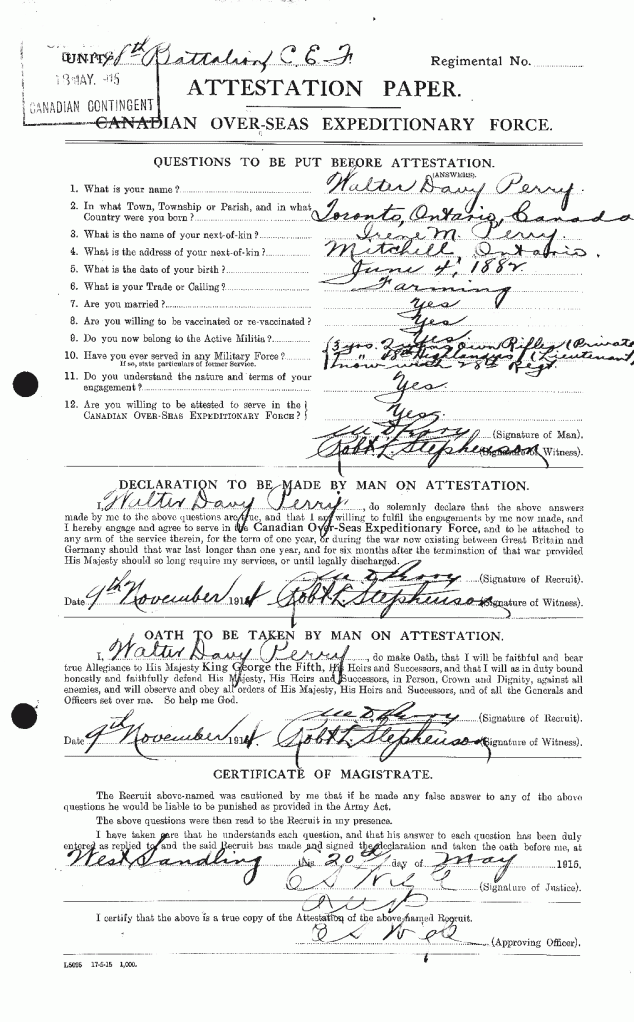 UNIT 18th Battalion, C. E. F. Regimental No.
13 MAY. 15
CANADIAN CONTINGENT
ATTESTATION PAPER.
CANADIAN OVER-SEAS EXPEDITIONARY FORCE.
QUESTIONS TO BE PUT BEFORE ATTESTATION.
(ANSWERS).
1. What is your name? Walter Davy Perry.
2. In what Town, Township or Parish, and in what
Country were you born? Toronto, Ontario, Canada
3. What is the name of your next-of-kin? Irene M. Perry.
4. What is the address of your next-of-kin? Mitchell, Ontario.
5. What is the date of your birth? June 4, 1882
6. What is your Trade or Calling? Farming
7. Are you married? Yes
8. Are you willing to be vaccinated or re-vaccinated? Yes
9. Do you now belong to the Active Militia? Yes.
10. Have you ever served in any Military Force? (3 yrs. Queens Own Rifles (Private
If so, state particulars of former Service. 48th Highlanders (Lieutenant)
now with 28th Regt.
11. Do you understand the nature and terms of your
engagement? Yes.
12. Are you willing to be attested to serve in the
CANADIAN OVER-SEAS EXPEDITIONARY FORCE? Yes.
W D Perry (Signature of Man).
Robt L Stephenson (Signature of Witness).
DECLARATION TO BE MADE BY MAN ON ATTESTATION.
I, Walter Davy Perry, do solemnly declare that the above answers
made by me to the above questions are true, and that I am willing to fulfil the engagements by me now made, and
I hereby engage and agree to serve in the Canadian Over-Seas Expeditionary Force, and to be attached to
any arm of the service therein, for the term of one year, or during the war now existing between Great Britain and
Germany should that war last longer than one year, and for six months after the termination of that war provided
His Majesty should so long require my services, or until legally discharged.
W D Perry (Signature of Recruit).
Date 9th November 1914 Robt L Stephenson (Signature of Witness).
OATH TO BE TAKEN BY MAN ON ATTESTATION.
I, Walter Davy Perry, do make Oath, that I will be faithful and bear
true Allegiance to His Majesty King George the Fifth, His Heirs and Successors, and that I will as in duty bound
honestly and faithfully defend His Majesty, His Heirs and Successors, in Person, Crown and Dignity, against all
enemies, and will observe and obey all orders of His Majesty, His Heirs and Successors, and of all the Generals and
Officers set over me. So help me God.
W D Perry (Signature of Recruit).
Date 9th November 1914 Robt L Stephenson (Signature of Witness).
CERTIFICATE OF MAGISTRATE.
The Recruit above-named was cautioned by me that if he made any false answer to any of the above
questions he would be liable to be punished as provided in the Army Act.
The above questions were then read to the Recruit in my presence.
I have taken care that he understands each question, and that his answer to each question has been duly
entered as replied to, and the said Recruit has made and signed the declaration and taken the oath before me, at
West Sandling this 20th day of May 1915.
(Signature of Justice).
I certify that the above is a true copy of the Attestation of the above-named Recruit.
(Approving Officer).
L5095 17-5-15 1,000.